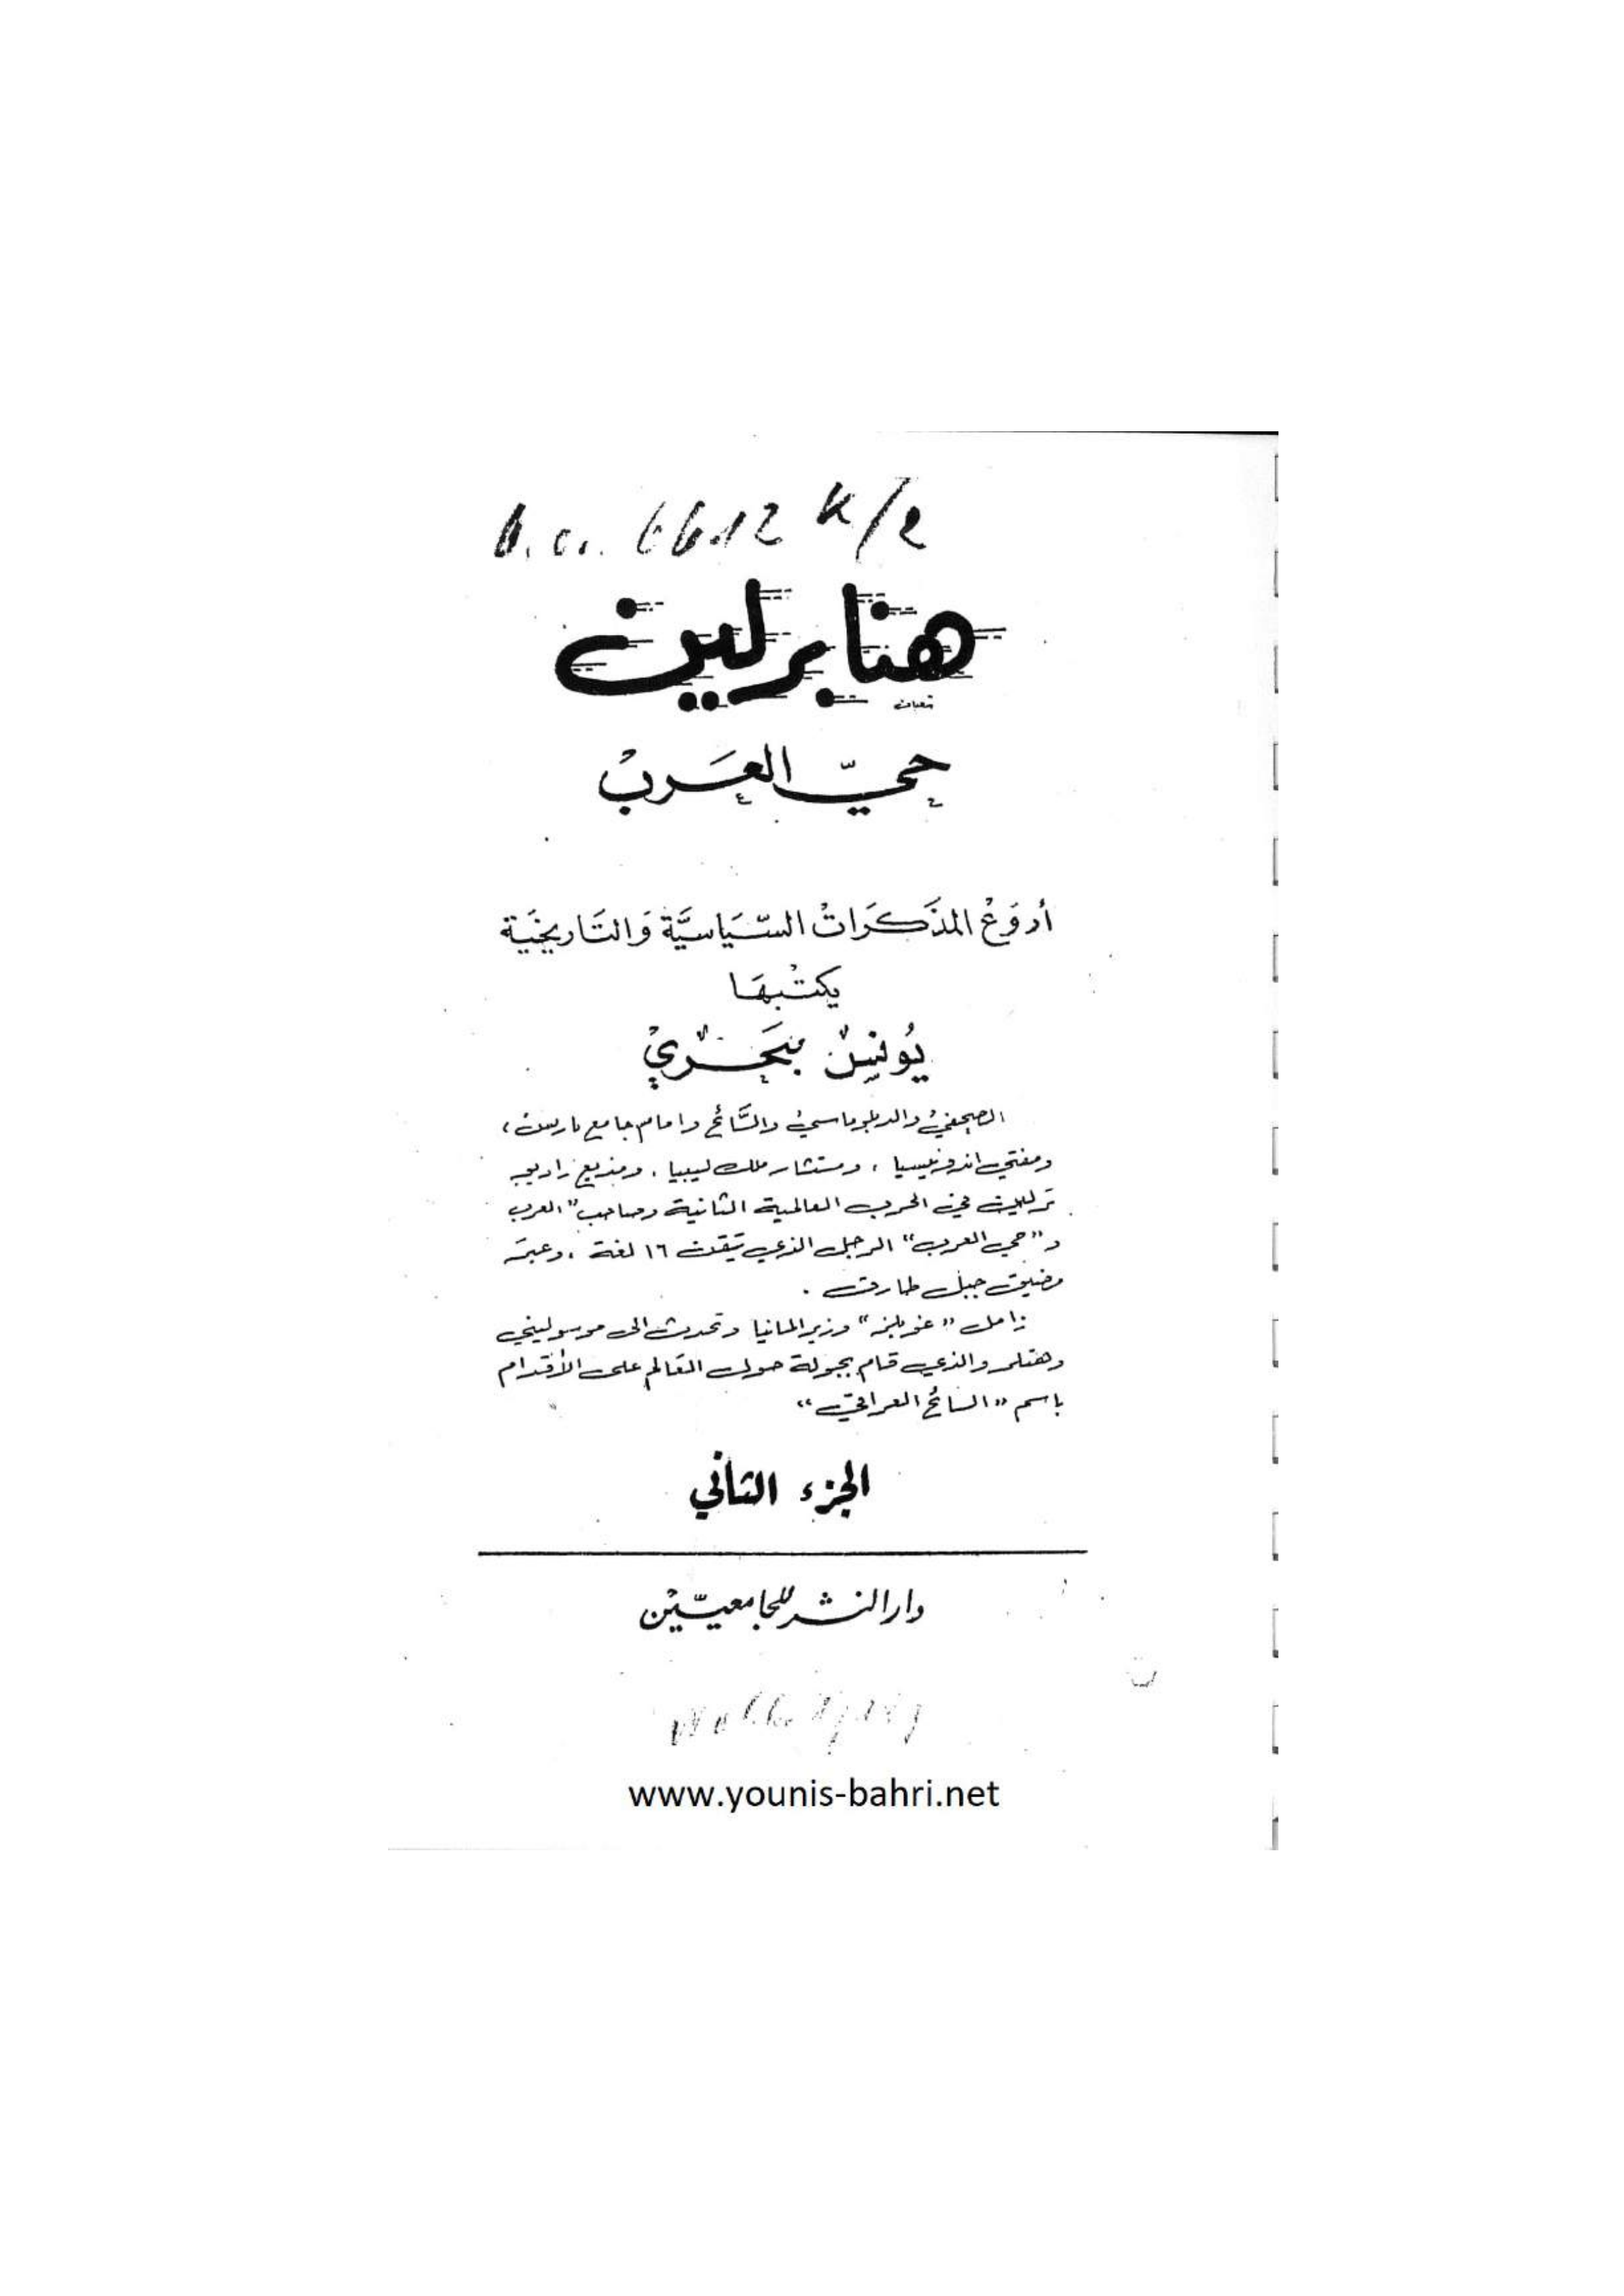 هنا برلين
شعبان
حيّ العَربْ
أروَعْ المذَكرَاتْ السّيَاسيَّة وَالتَاريخيَة
يكتْبهَا
يُونسْ بَحَرْيْ
الصحفي والدبلوماسي والسَّائح وامام جامع باريس،
ومفتي اندونيسيا، ومستشار ملك ليبيا، ومذيع راديو
برلين في الحرب العالمية الثانية وصاحب "العرب
و"حي العرب" الرجل الذي يتقن ١٦ لغة، وعبَر
مضيق جبل طارق.
زامل "غوبلز" وزير المانيا وتحدث الى موسوليني
وهتلر والذي قام بجولة حول العَالم على الأقدام
باسم "السائح العراقي"
الجزء الثاني
دار النشر للجامعيّين
www.younis-bahri.net